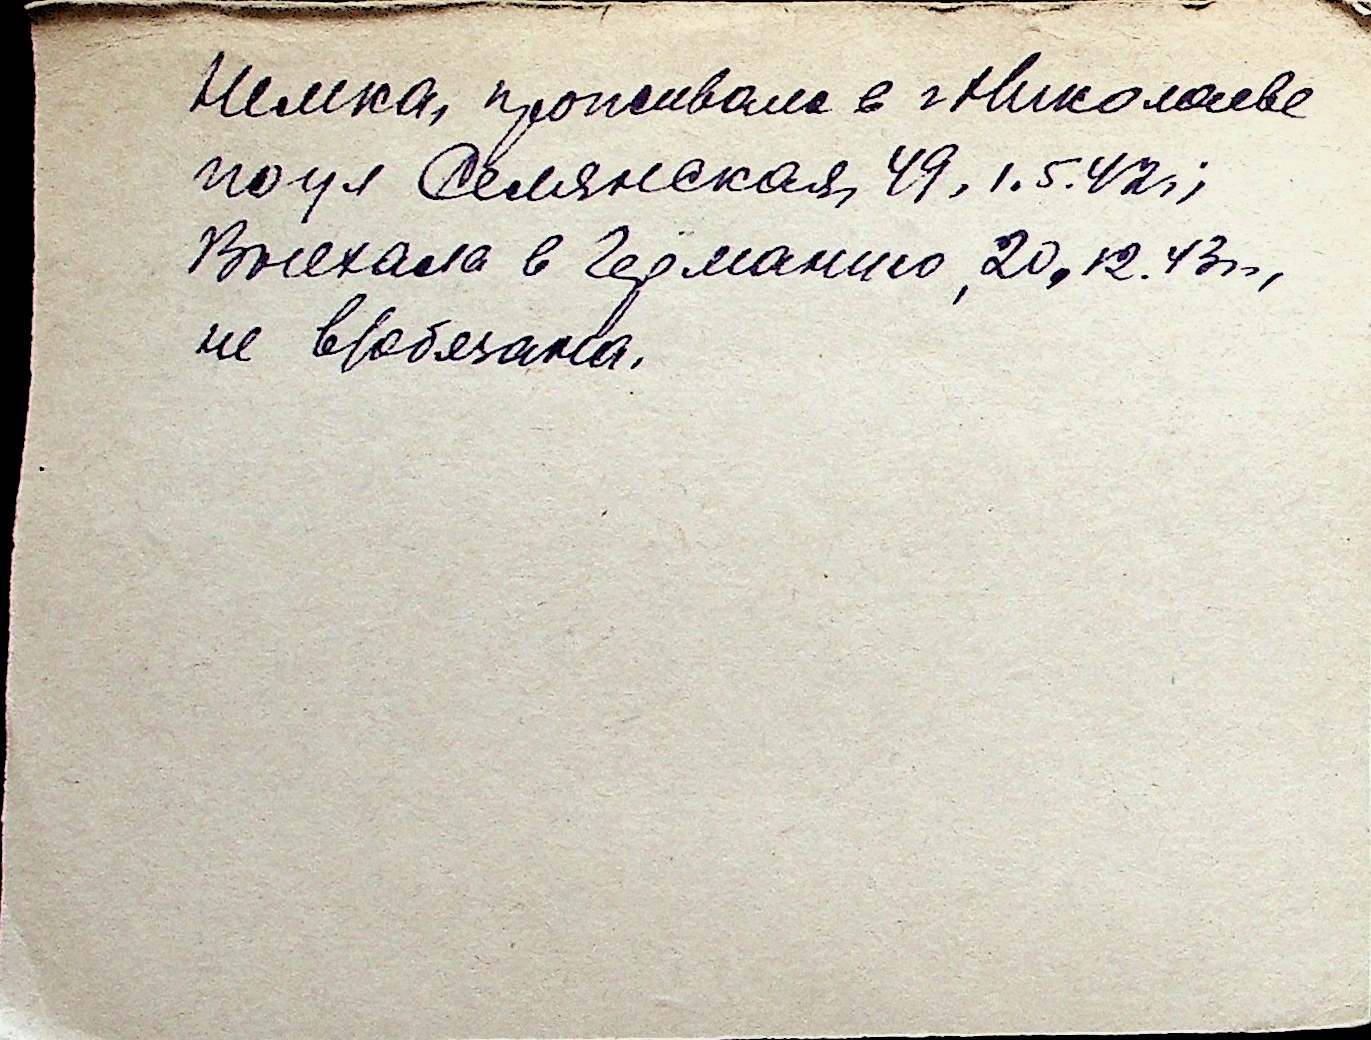 Немка, проживала в г Николаеве
по ул Селянская, 49, 1.5.42г.;
Выехала в Германию, 20.12.43г.,
не в/обязана.